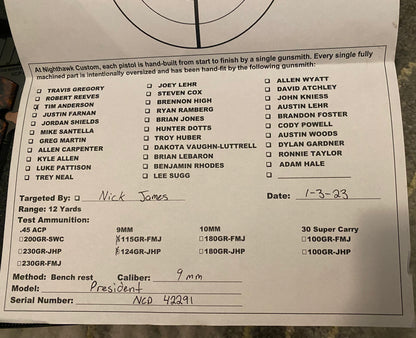 At Nighthawk Custom, each pistol is hand-built from start to finish by a single gunsmith. Every single fully
machined part is intentionally oversized and has been hand-fit by the following gunsmith:
☐ TRAVIS GREGORY
☐ ROBERT REEVES
☒ TIM ANDERSON
☐ JUSTIN FARNAN
☐ JORDAN SHIELDS
☐ MIKE SANTELLA
☐ GREG MARTIN
☐ ALLEN CARPENTER
☐ KYLE ALLEN
☐ LUKE PATTISON
☐ TREY NEAL
☐ JOEY LEHR
☐ STEVEN COX
☐ BRENNON HIGH
☐ RYAN RAMBERG
☐ BRIAN JONES
☐ HUNTER DOTTS
☐ TROY HUBER
☐ DAKOTA VAUGHN-LUTTRELL
☐ BRIAN LEBARON
☐ BENJAMIN RHODES
☐ LEE SUGG
☐ ALLEN WYATT
☐ DAVID ATCHLEY
☐ JOHN KNIESS
☐ AUSTIN LEHR
☐ BRANDON FOSTER
☐ CODY POWELL
☐ AUSTIN WOODS
☐ DYLAN GARDNER
☐ RONNIE TAYLOR
☐ ADAM HALE
☐
Targeted By: ☐ Nick James Date: 1-3-23
Range: 12 Yards
Test Ammunition:
.45 ACP 9MM 10MM 30 Super Carry
☐200GR-SWC ☒115GR-FMJ ☐180GR-FMJ ☐100GR-FMJ
☐230GR-JHP ☒124GR-JHP ☐180GR-JHP ☐100GR-JHP
☐230GR-FMJ
Method: Bench rest Caliber: 9mm
Model: President
Serial Number: NCP 42291